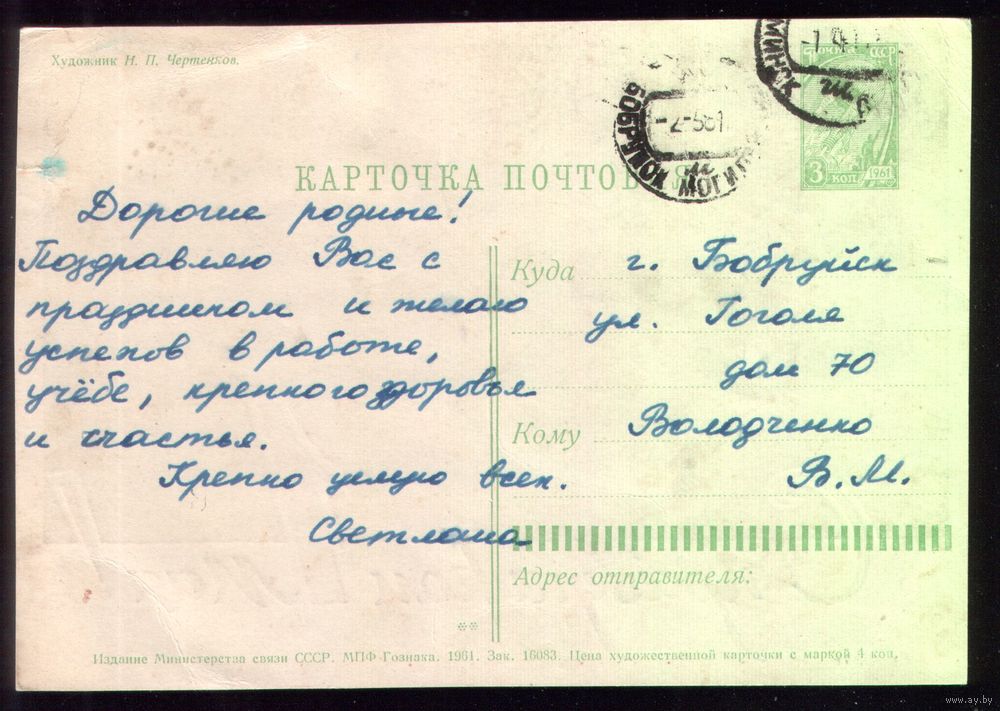 Художник Н. П. Чертенков.
МИНСК
ПОЧТА СССР
3 коп 1961
КАРТОЧКА ПОЧТОВАЯ
Дорогие родные!
Поздравляю Вас с
праздником и желаю
успехов в работе,
учёбе, крепкого здоровья
и счастья.
Крепко целую всех.
Светлана
Куда г. Бобруйск
ул. Гоголя
дом 70
Кому Володченко
В. М.
Адрес отправителя:
Издание Министерства связи СССР. МПФ Гознака. 1961. Зак. 16083. Цена художественной карточки с маркой 4 коп.
www.ay.by